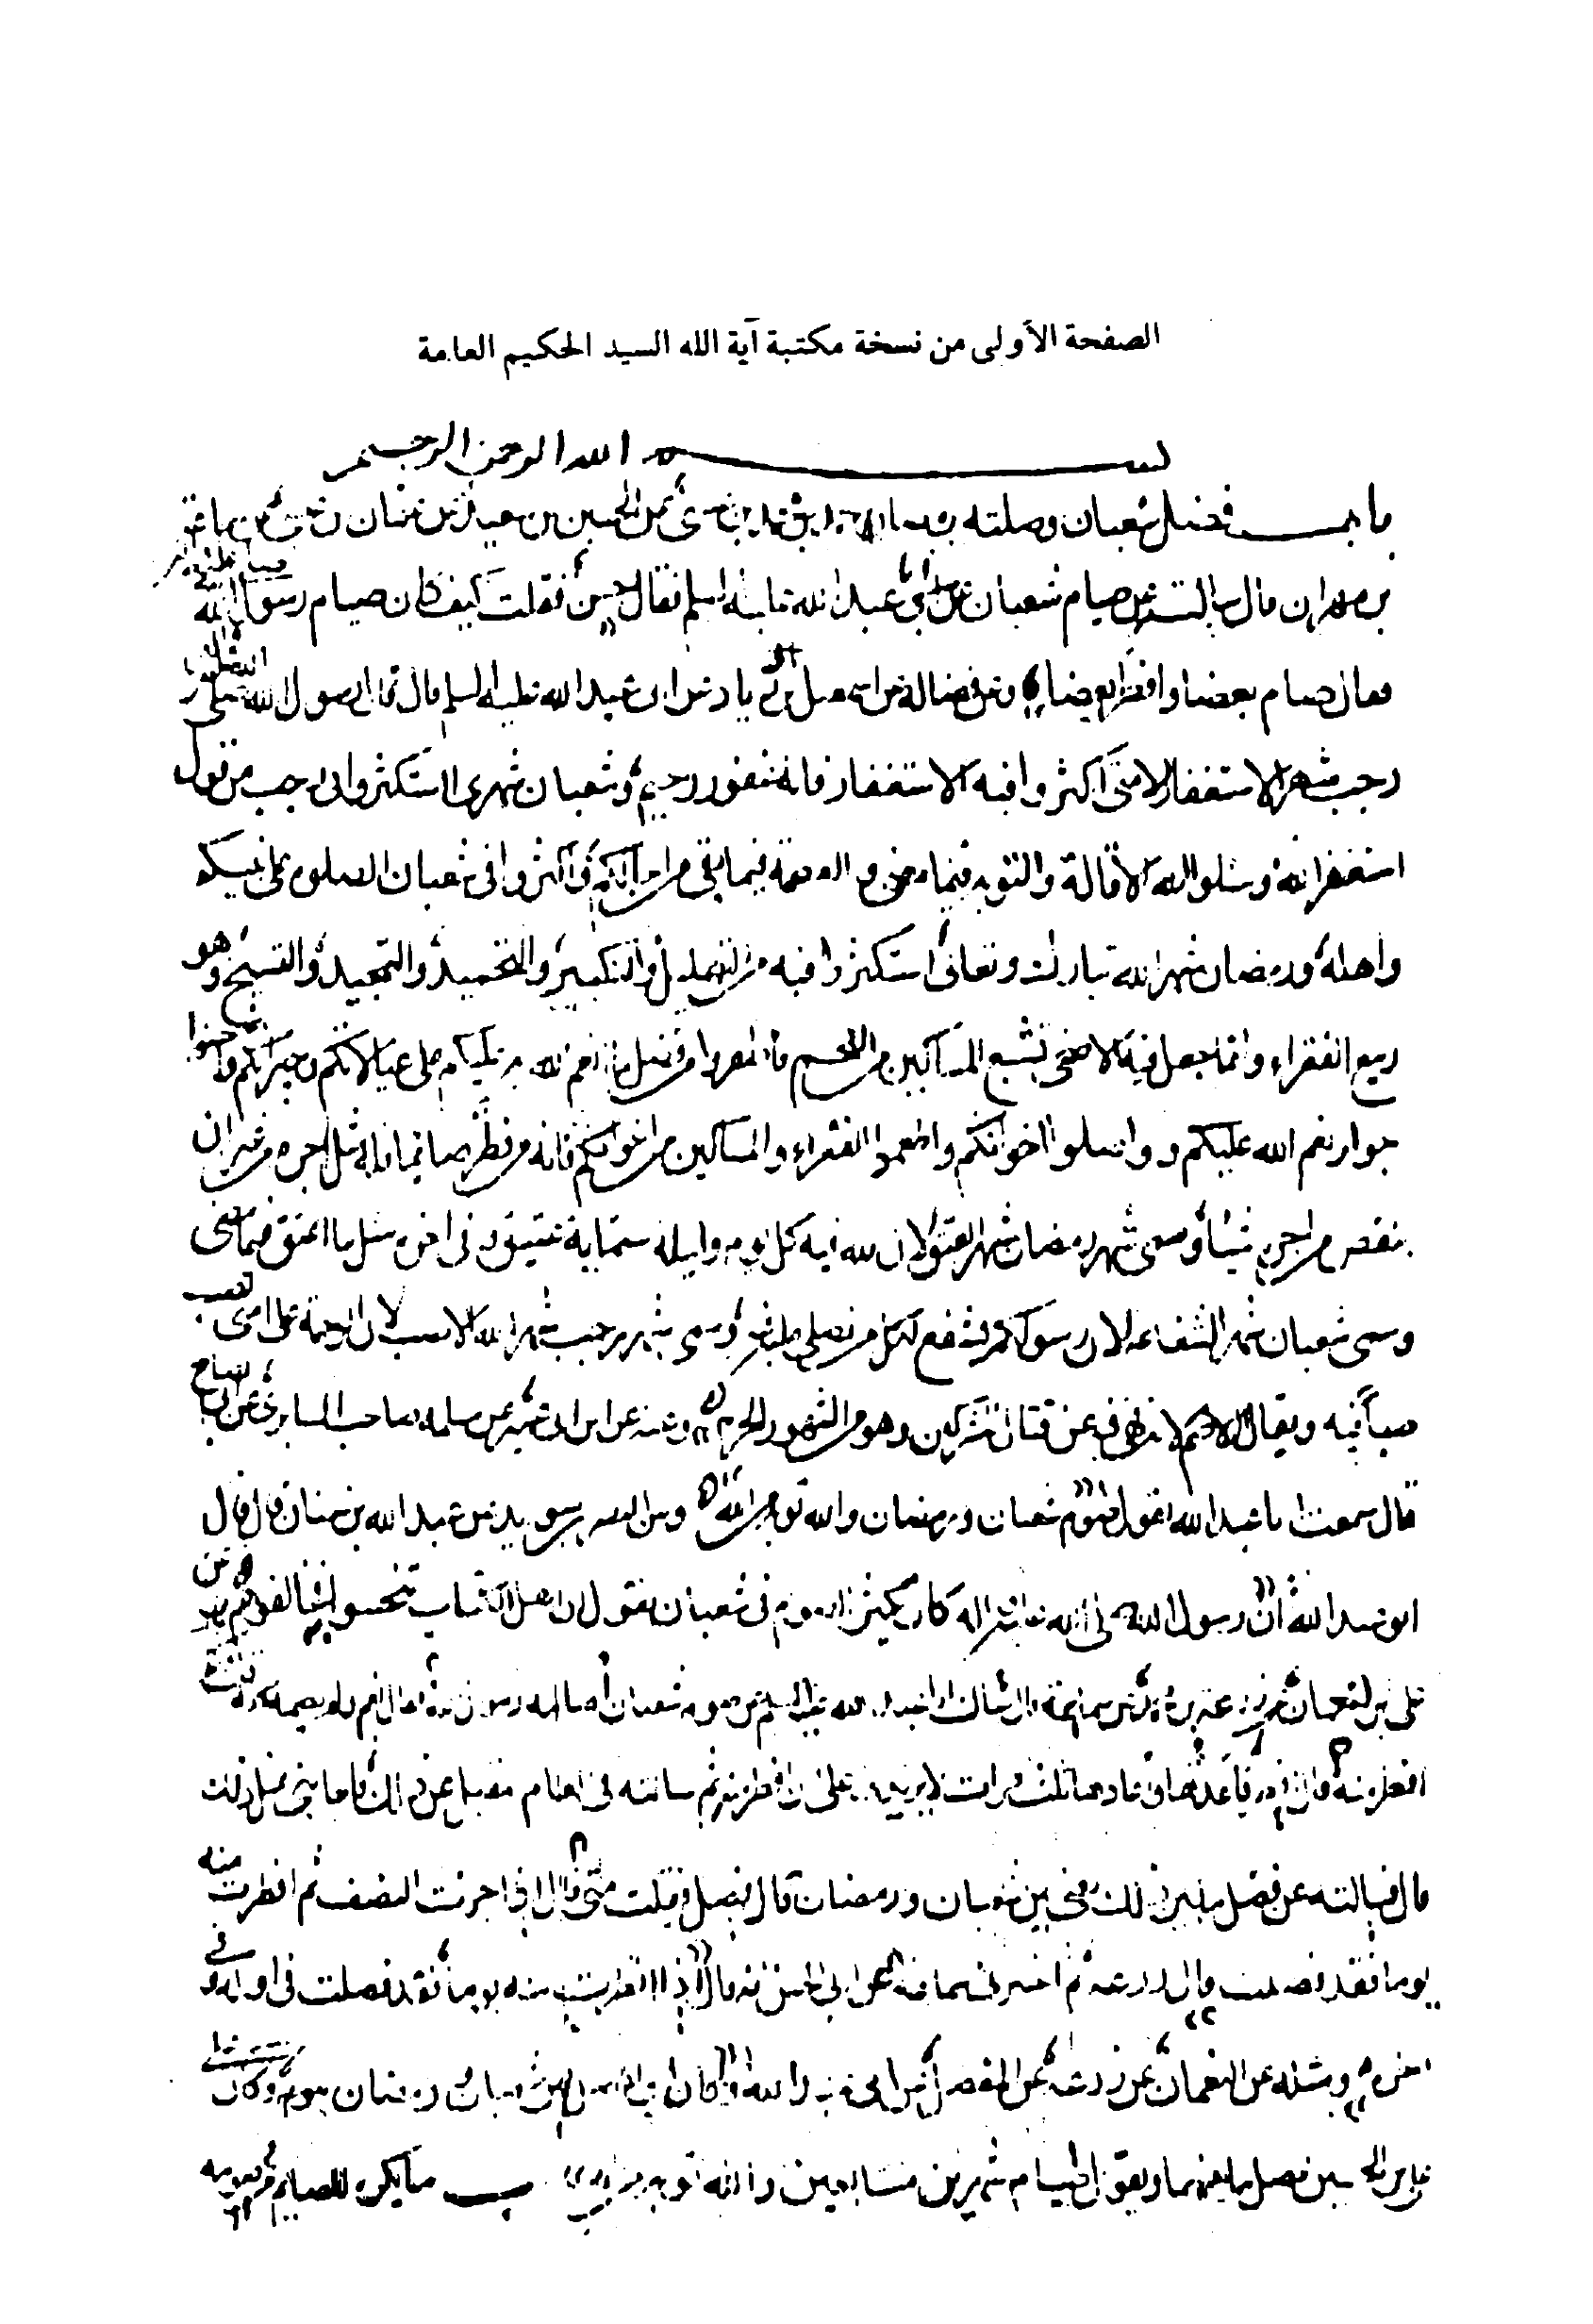 الصفحة الأولى من نسخة مكتبة آية الله السيد الحكيم العامة
بسم الله الرحمن الرحيم
باب فضل شعبان وصلته عن الحسين بن سعيد عن عثمان بن عن سماعة
بن مهران قال سالت عن صيام شعبان ابي عبد الله عليه السلم فقال حسن فقلت كيف كان صيام رسول الله
فقال صام بعضا وافطر بعضا وعن فضالة عن اسمعيل بن زياد عن ابى عبد الله عليه السلم قال قال رسول الله صلى
رجب شهر الاستغفار لامتى اكثروا فيه الاستغفار فانه غفور رحيم وشعبان شهرى استكثروا فى رجب من قول
استغفر الله وسلوا الله الاقالة والتوبة فيما مضى والعصمة فيما بقى من اجالكم واكثروا فى شعبان الصلوة على نبيكم
واهله ورمضان شهر الله تبارك وتعالى استكثروا فيه من التهليل والتكبير والتحميد والتمجيد والتسبيح وهو
ربيع الفقراء وانما جعل فيه الاضحى لتشبع المساكين من اللحم فاطعموا من فضل ما انعم الله به عليكم على عيالاتكم وجيرانكم واحسنوا
جوار نعم الله عليكم وواصلوا اخوانكم واطعموا الفقراء والمساكين من اخوانكم فانه من فطر صائما فله مثل اجره من غير ان
ينقص من اجره شيئا وسمى شهر رمضان شهر العتق لان لله فيه كل يوم وليلة ستماية عتيق وفى اخره مثل ما اعتق فيما مضى
وسمى شعبان شهر الشفاعة لان رسولكم يشفع لكل من يصلى عليه فيه وسمى شهر رجب شهر الله الاصب لان الرحمة على امتى تصب
صبا فيه ويقال الاصم لانه نهى فيه عن قتال المشركين وهو من الشهور الحرم وعنه عن ابن ابى عمير عن سلمه صاحب السابرى عن ابى الصباح
قال سمعت ابا عبد الله يقول صوم شعبان ورمضان والله توبة من الله وعن النضر بن سويد عن عبد الله بن سنان قال قال
ابو عبد الله ان رسول الله صلى الله عليه واله كان يكثر الصوم فى شعبان يقول ان اهل الكتاب تنحسوا به فخالفوهم وعن
على بن النعمان عن زرعة عن سماعة قال سالت ابا عبد الله عليه السلم عن صوم شعبان اصامه رسول الله قال نعم ولم يصمه كله قلت كم
افطر منه قال افطر فاعدتها واعادها ثلث مرات لا يزيدنى على ان افطر منه ثم سالته فى العام المقبل عن ذلك فاجابنى بمثل ذلك
قال فسالته عن فصل ما بين ذلك يعنى بين شعبان ورمضان قال فصل فقلت متى قال اذا جزت النصف ثم افطرت منه
يوما فقد فصلت قال زرعه ثم اخبرنى سماعة عن ابى الحسن انه قال اذا افطرت منه يوما فقد فصلت فى اوله وفى
اخره وبمثله عن النعمان عن زرعه عن المفضل عن ابى عبد الله قال كان ابى يفصل بين شعبان ورمضان بيوم وكان
على بن الحسين يصل ما بينهما ويقول صيام شهرين متتابعين والله توبة من الله باب ما يكره للصايم فى صومه